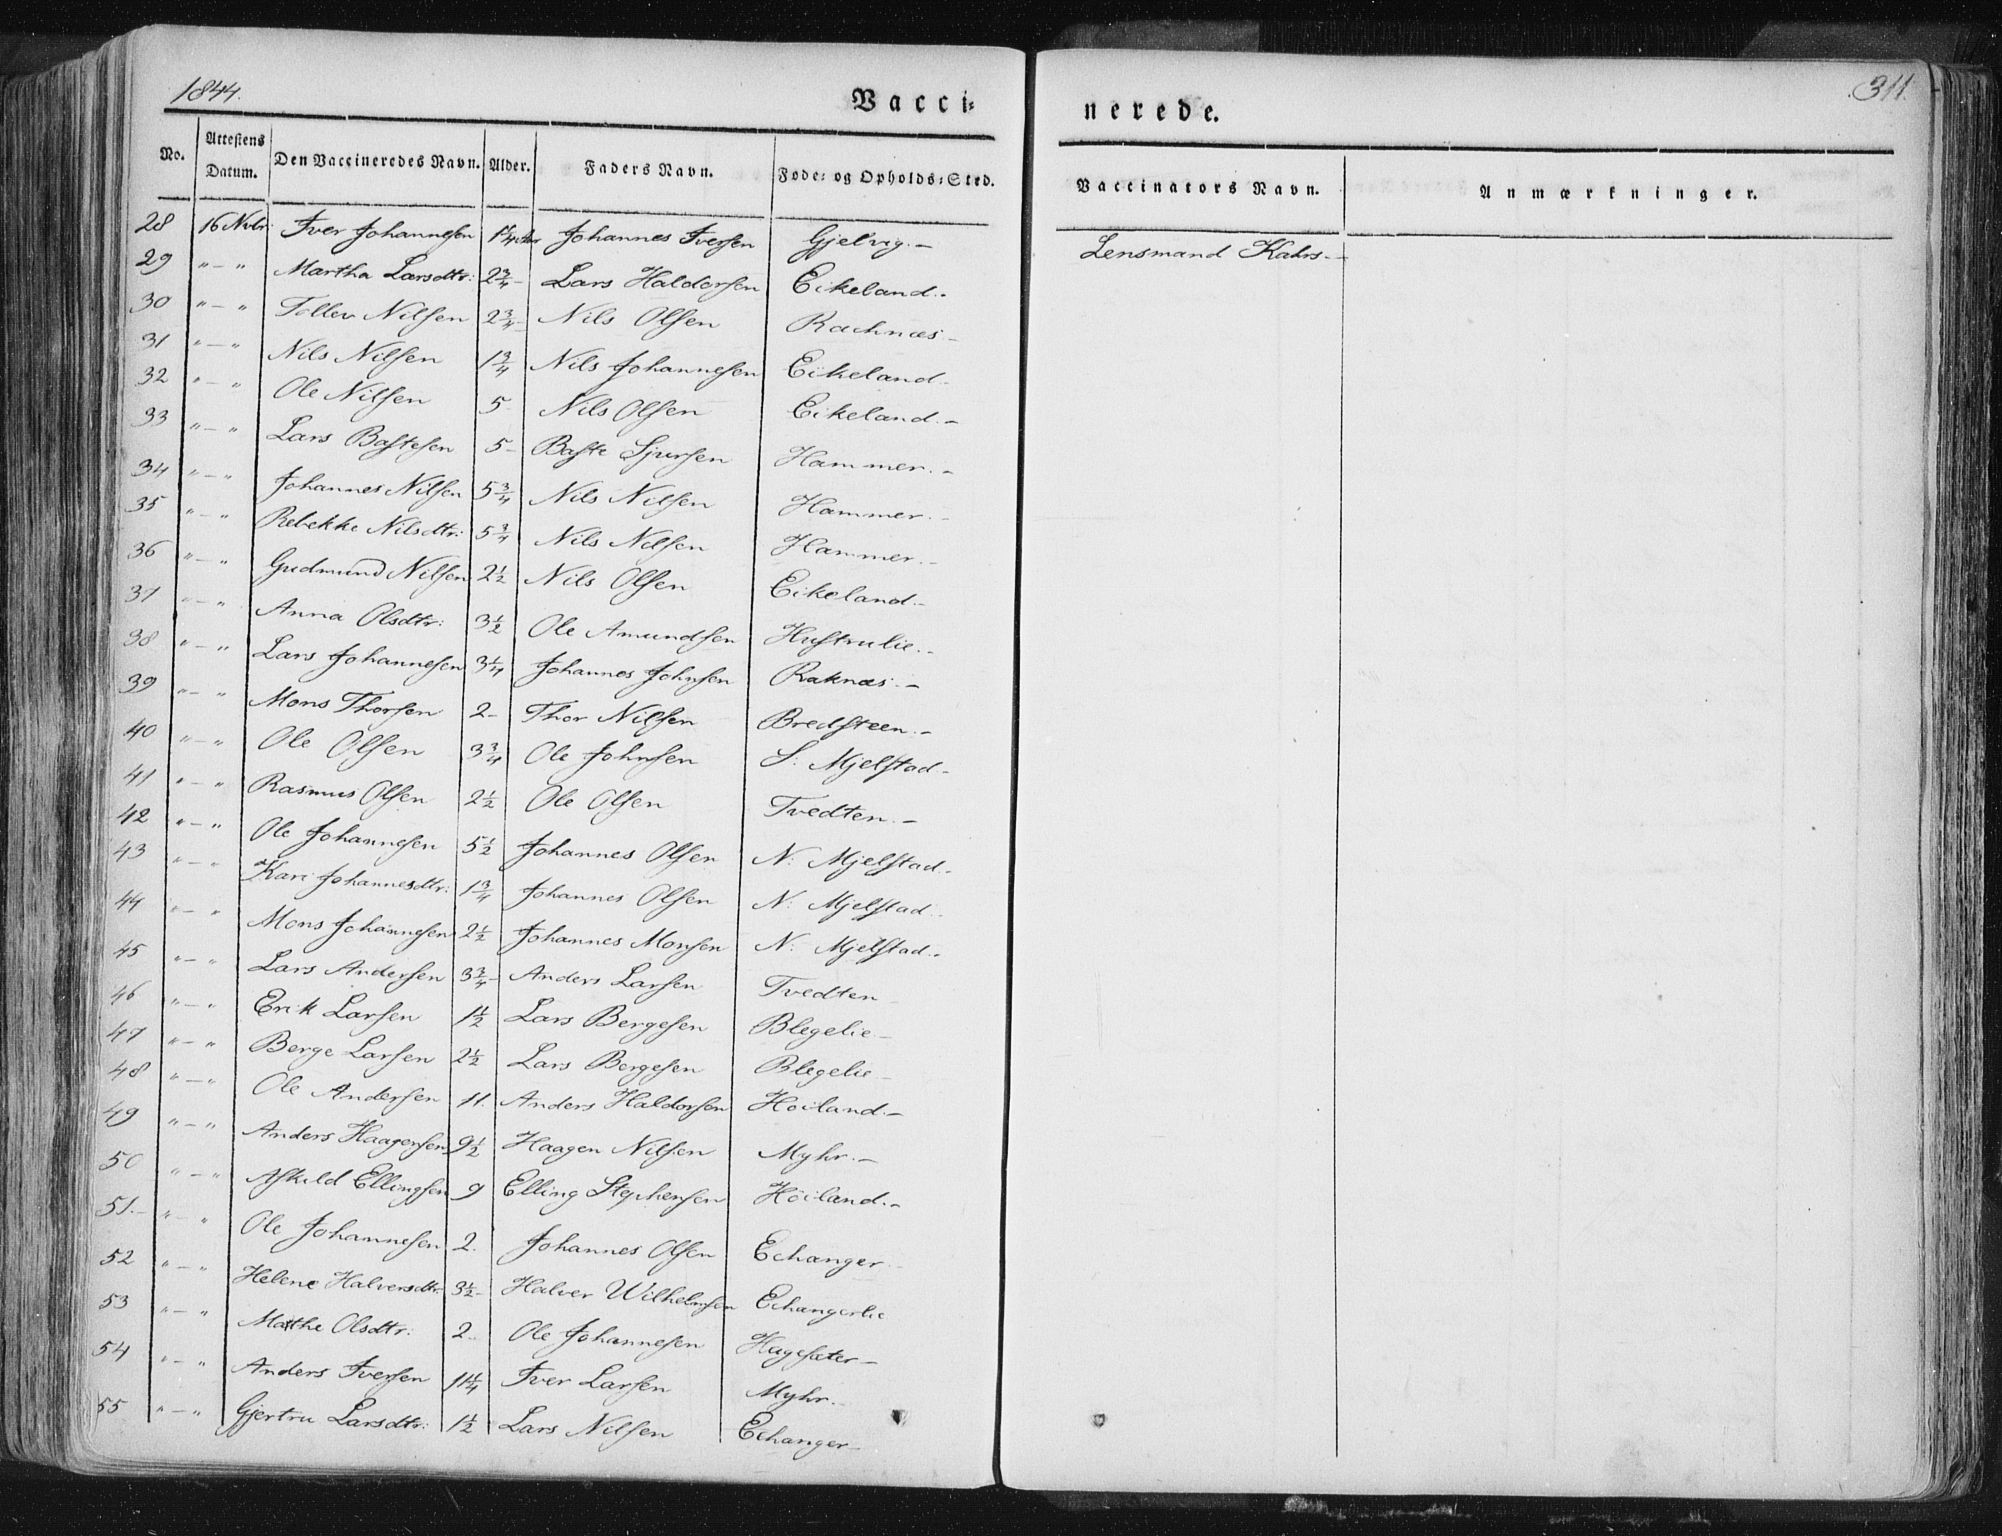 1844.
Vacci= nerede.
311.
No. Attestens Datum. Den Vaccineredes Navn. Alder. Faders Navn. Føde= og Opholds=Sted. Vaccinators Navn. Anmærkninger.
28 16 Nvbr: Iver Johannesen 1 1/4 Johannes Iversen Gjelvig.- Lensmand Kahrs-
29 "-" Martha Larsdtr: 2 3/4- Lars Haldorsen Eikeland.-
30 "-" Tollev Nilsen 2 3/4- Nils Olsen Racknæs-
31 "-" Nils Nilsen 1 3/4 Nils Johannesen Eikeland.-
32 "-" Ole Nilsen 5- Nils Olsen Eikeland.-
33 "-" Lars Bastesen 5- Baste Sjursen Hammer.-
34 "-" Johannes Nilsen 5 3/4 Nils Nilsen Hammer.-
35 "-" Rebekke Nilsdtr: 5 3/4 Nils Nilsen Hammer.-
36 "-" Gudmund Nilsen 2 1/2 Nils Olsen Eikeland.-
37 "-" Anna Olsdtr: 3 1/2 Ole Amundsen Hustrulie.-
38 "-" Lars Johannesen 3 1/4 Johannes Johnsen Raknæs.-
39 "-" Mons Thorsen 2- Thor Nilsen Bredsteen.-
40 "-" Ole Olsen 3 3/4 Ole Johnsen S: Mjelstad-
41 "-" Rasmus Olsen 2 1/2 Ole Olsen Tvedten.-
42 "-" Ole Johannesen 5 1/2 Johannes Olsen N: Mjelstad.-
43 "-" Kari Johannesdtr: 1 3/4 Johannes Olsen N: Mjelstad.-
44 "-" Mons Johannesen 2 1/2 Johannes Monsen N: Mjelstad.-
45 "-" Lars Andersen 3 3/4- Anders Larsen Tvedten-
46 "-" Erik Larsen 1 1/2 Lars Bergesen Blegelie-
47 "-" Berge Larsen 2 1/2 Lars Bergesen Blegelie-
48 "-" Ole Andersen 11. Anders Haldorsen Hoiland.-
49 "-" Anders Haagensen 9 1/2 Haagen Nilsen Myhr.-
50 "-" Askild Ellingsen 9 Elling Stephensen Höiland.-
51.- "-" Ole Johannesen 2. Johannes Olsen Echanger-
52 "-" Helene Halversdtr: 3 1/2- Halver Wilhelmsen Echangerlie
53 "-" Matthe Olsdtr: 2- Ole Johannesen Hagesæter-
54 "-" Anders Iversen 11 1/4 Iver Larsen Myhr.-
55 "-" Gjertru Larsdtr: 1 1/2 Lars Nilsen Echanger-